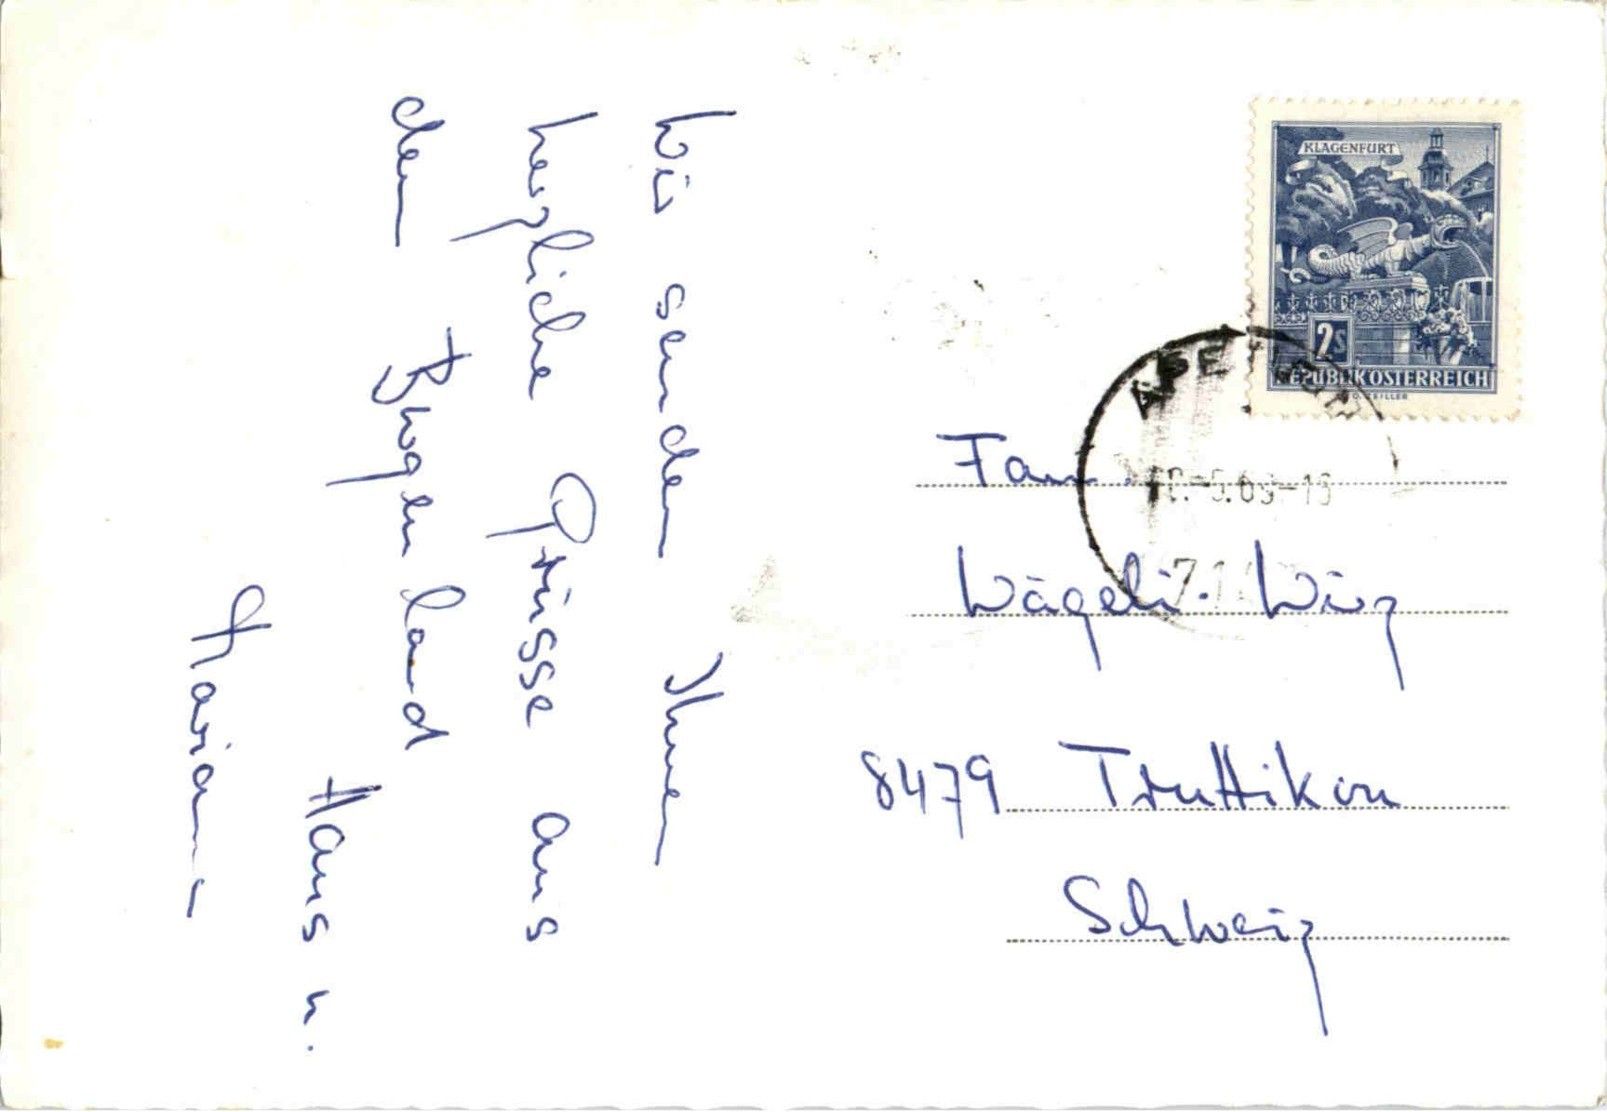 Wir senden Ihnen
herzliche Grüsse aus
dem Burgenland
Hans u.
Marian
KLAGENFURT
2S
REPUBLIK ÖSTERREICH
APETLON
Fam.
Wägeli-Würz
8479 Truttikon
Schweiz